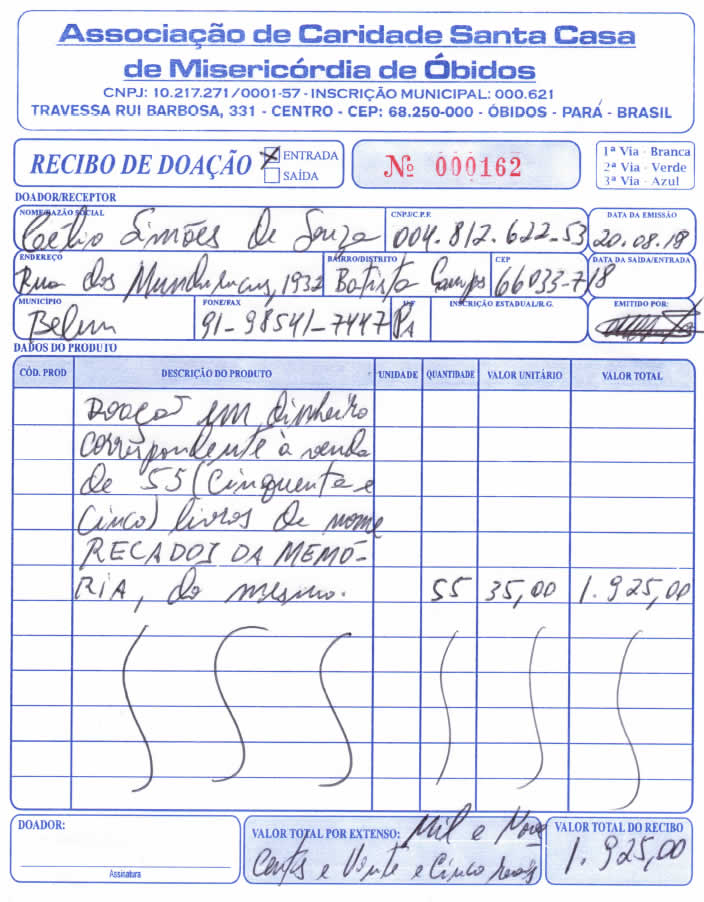 Associação de Caridade Santa Casa
de Misericórdia de Óbidos
CNPJ: 10.217.271/0001-57 - INSCRIÇÃO MUNICIPAL: 000.621
TRAVESSA RUI BARBOSA, 331 - CENTRO - CEP: 68.250-000 - ÓBIDOS - PARÁ - BRASIL
RECIBO DE DOAÇÃO X ENTRADA
SAÍDA
Nº 000162
1ª Via - Branca
2ª Via - Verde
3ª Via - Azul
DOADOR/RECEPTOR
NOME/RAZÃO SOCIAL CNPJ/C.P.F. DATA DA EMISSÃO
Célio Simões de Souza 004.812.622-53 20.08.18
ENDEREÇO BAIRRO/DISTRITO CEP DATA DA SAÍDA/ENTRADA
Rua dos Mundurucus, 1932 Batista Campos 66033-718
MUNICÍPIO FONE/FAX UF INSCRIÇÃO ESTADUAL/R.G. EMITIDO POR:
Belém 91-98541-7447 PA
DADOS DO PRODUTO
CÓD. PROD DESCRIÇÃO DO PRODUTO UNIDADE QUANTIDADE VALOR UNITÁRIO VALOR TOTAL
Doação em dinheiro
correspondente à venda
de 55 (Cinquenta e
Cinco) livros de nome
RECADOS DA MEMÓ-
RIA, do mesmo. 55 35,00 1.925,00
DOADOR:
Assinatura
VALOR TOTAL POR EXTENSO: Mil e Nove
Centos e Vinte e Cinco reais
VALOR TOTAL DO RECIBO
1.925,00